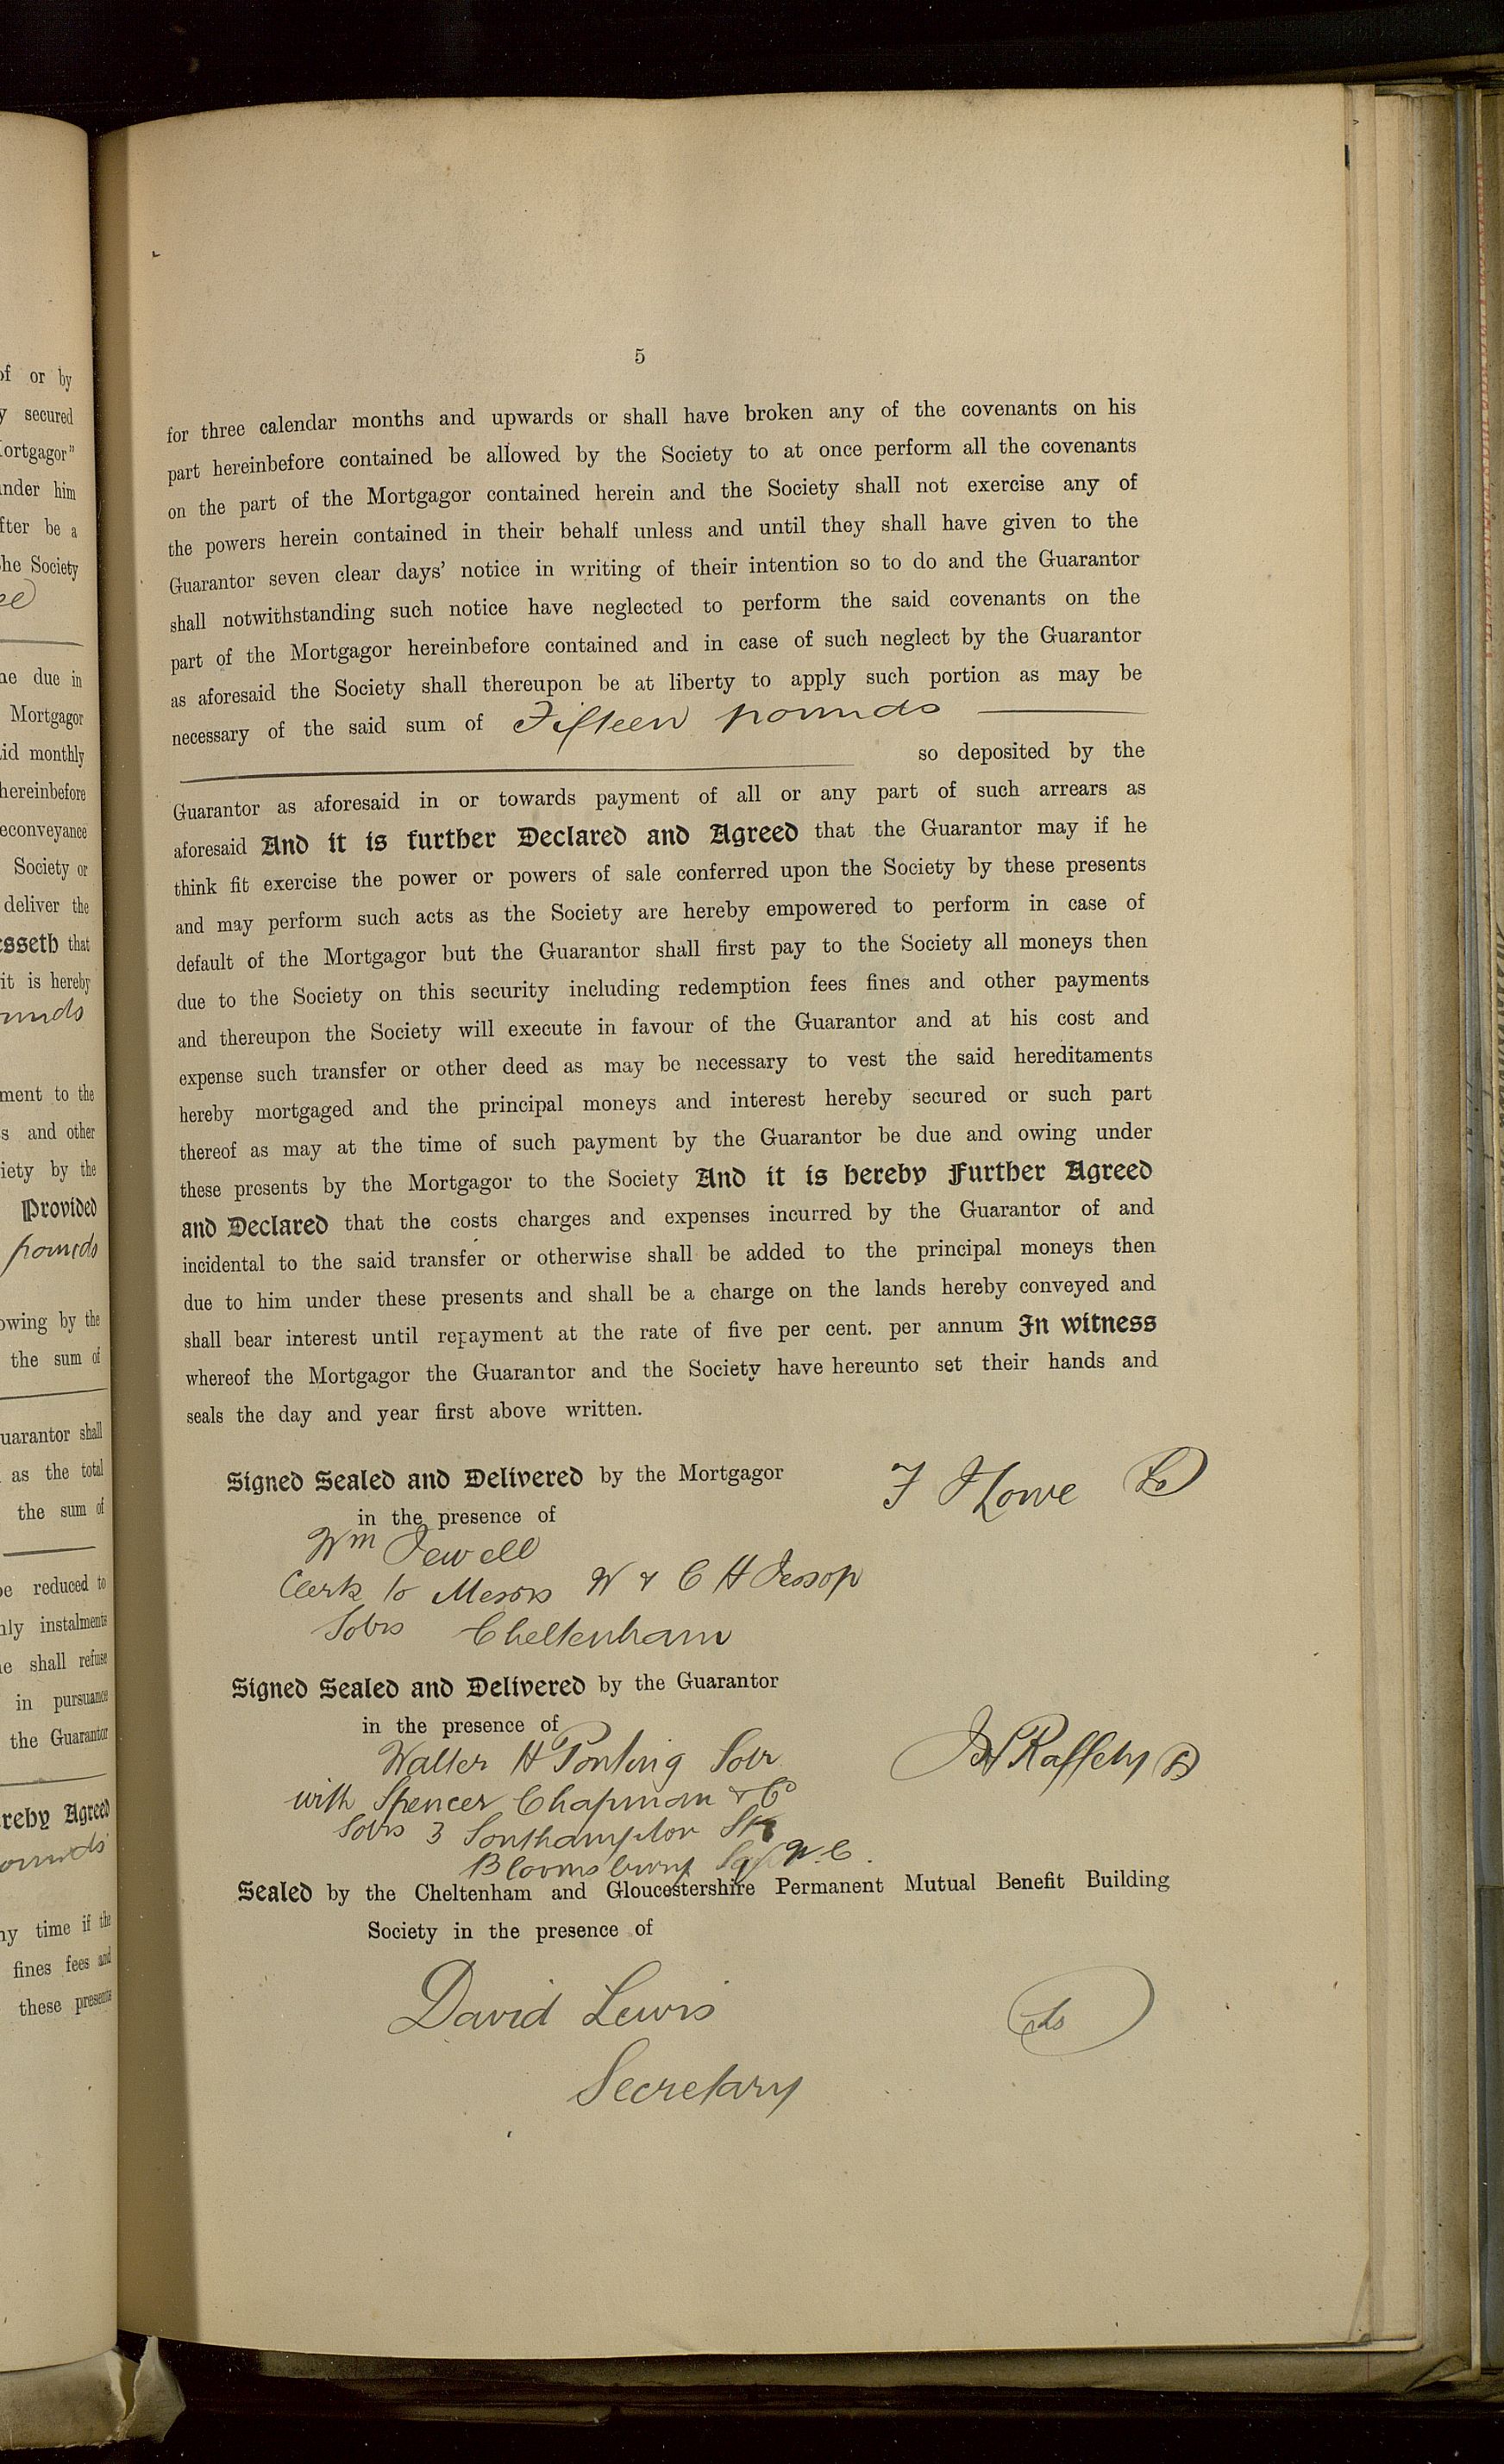 5
for three calendar months and upwards or shall have broken any of the covenants on his
part hereinbefore contained be allowed by the Society to at once perform all the covenants
on the part of the Mortgagor contained herein and the Society shall not exercise any of
the powers herein contained in their behalf unless and until they shall have given to the
Guarantor seven clear days' notice in writing of their intention so to do and the Guarantor
shall notwithstanding such notice have neglected to perform the said covenants on the
part of the Mortgagor hereinbefore contained and in case of such neglect by the Guarantor
as aforesaid the Society shall thereupon be at liberty to apply such portion as may be
necessary of the said sum of Fifteen pounds
so deposited by the
Guarantor as aforesaid in or towards payment of all or any part of such arrears as
aforesaid And it is further Declared and Agreed that the Guarantor may if he
think fit exercise the power or powers of sale conferred upon the Society by these presents
and may perform such acts as the Society are hereby empowered to perform in case of
default of the Mortgagor but the Guarantor shall first pay to the Society all moneys then
due to the Society on this security including redemption fees fines and other payments
and thereupon the Society will execute in favour of the Guarantor and at his cost and
expense such transfer or other deed as may be necessary to vest the said hereditaments
hereby mortgaged and the principal moneys and interest hereby secured or such part
thereof as may at the time of such payment by the Guarantor be due and owing under
these presents by the Mortgagor to the Society And it is hereby Further Agreed
and Declared that the costs charges and expenses incurred by the Guarantor of and
incidental to the said transfer or otherwise shall be added to the principal moneys then
due to him under these presents and shall be a charge on the lands hereby conveyed and
shall bear interest until repayment at the rate of five per cent. per annum In witness
whereof the Mortgagor the Guarantor and the Society have hereunto set their hands and
seals the day and year first above written.
Signed Sealed and Delivered by the Mortgagor
in the presence of
Wm Jewell
Clerk to Messrs W & C H Jessop
Solrs Cheltenham
Signed Sealed and Delivered by the Guarantor
in the presence of
Walter H Ponting Solr
with Spencer Chapman & Co
Solrs 3 Southampton St
Bloomsbury W.C.
Sealed by the Cheltenham and Gloucestershire Permanent Mutual Benefit Building
Society in the presence of
David Lewis
Secretary